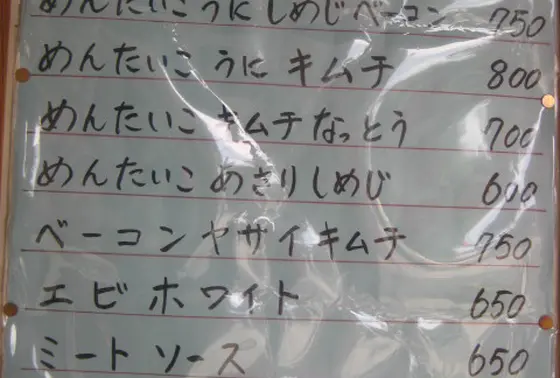 めんたいこうにしめじベーコン 750
めんたいこ うに キムチ 800
めんたいこ キムチなっとう 700
めんたいこ あさりしめじ 600
ベーコンヤサイキムチ 750
エビ ホワイト 650
ミート ソース 650